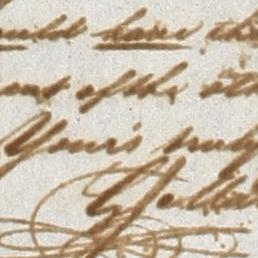 ould have the
ent of the oth
Yours truly